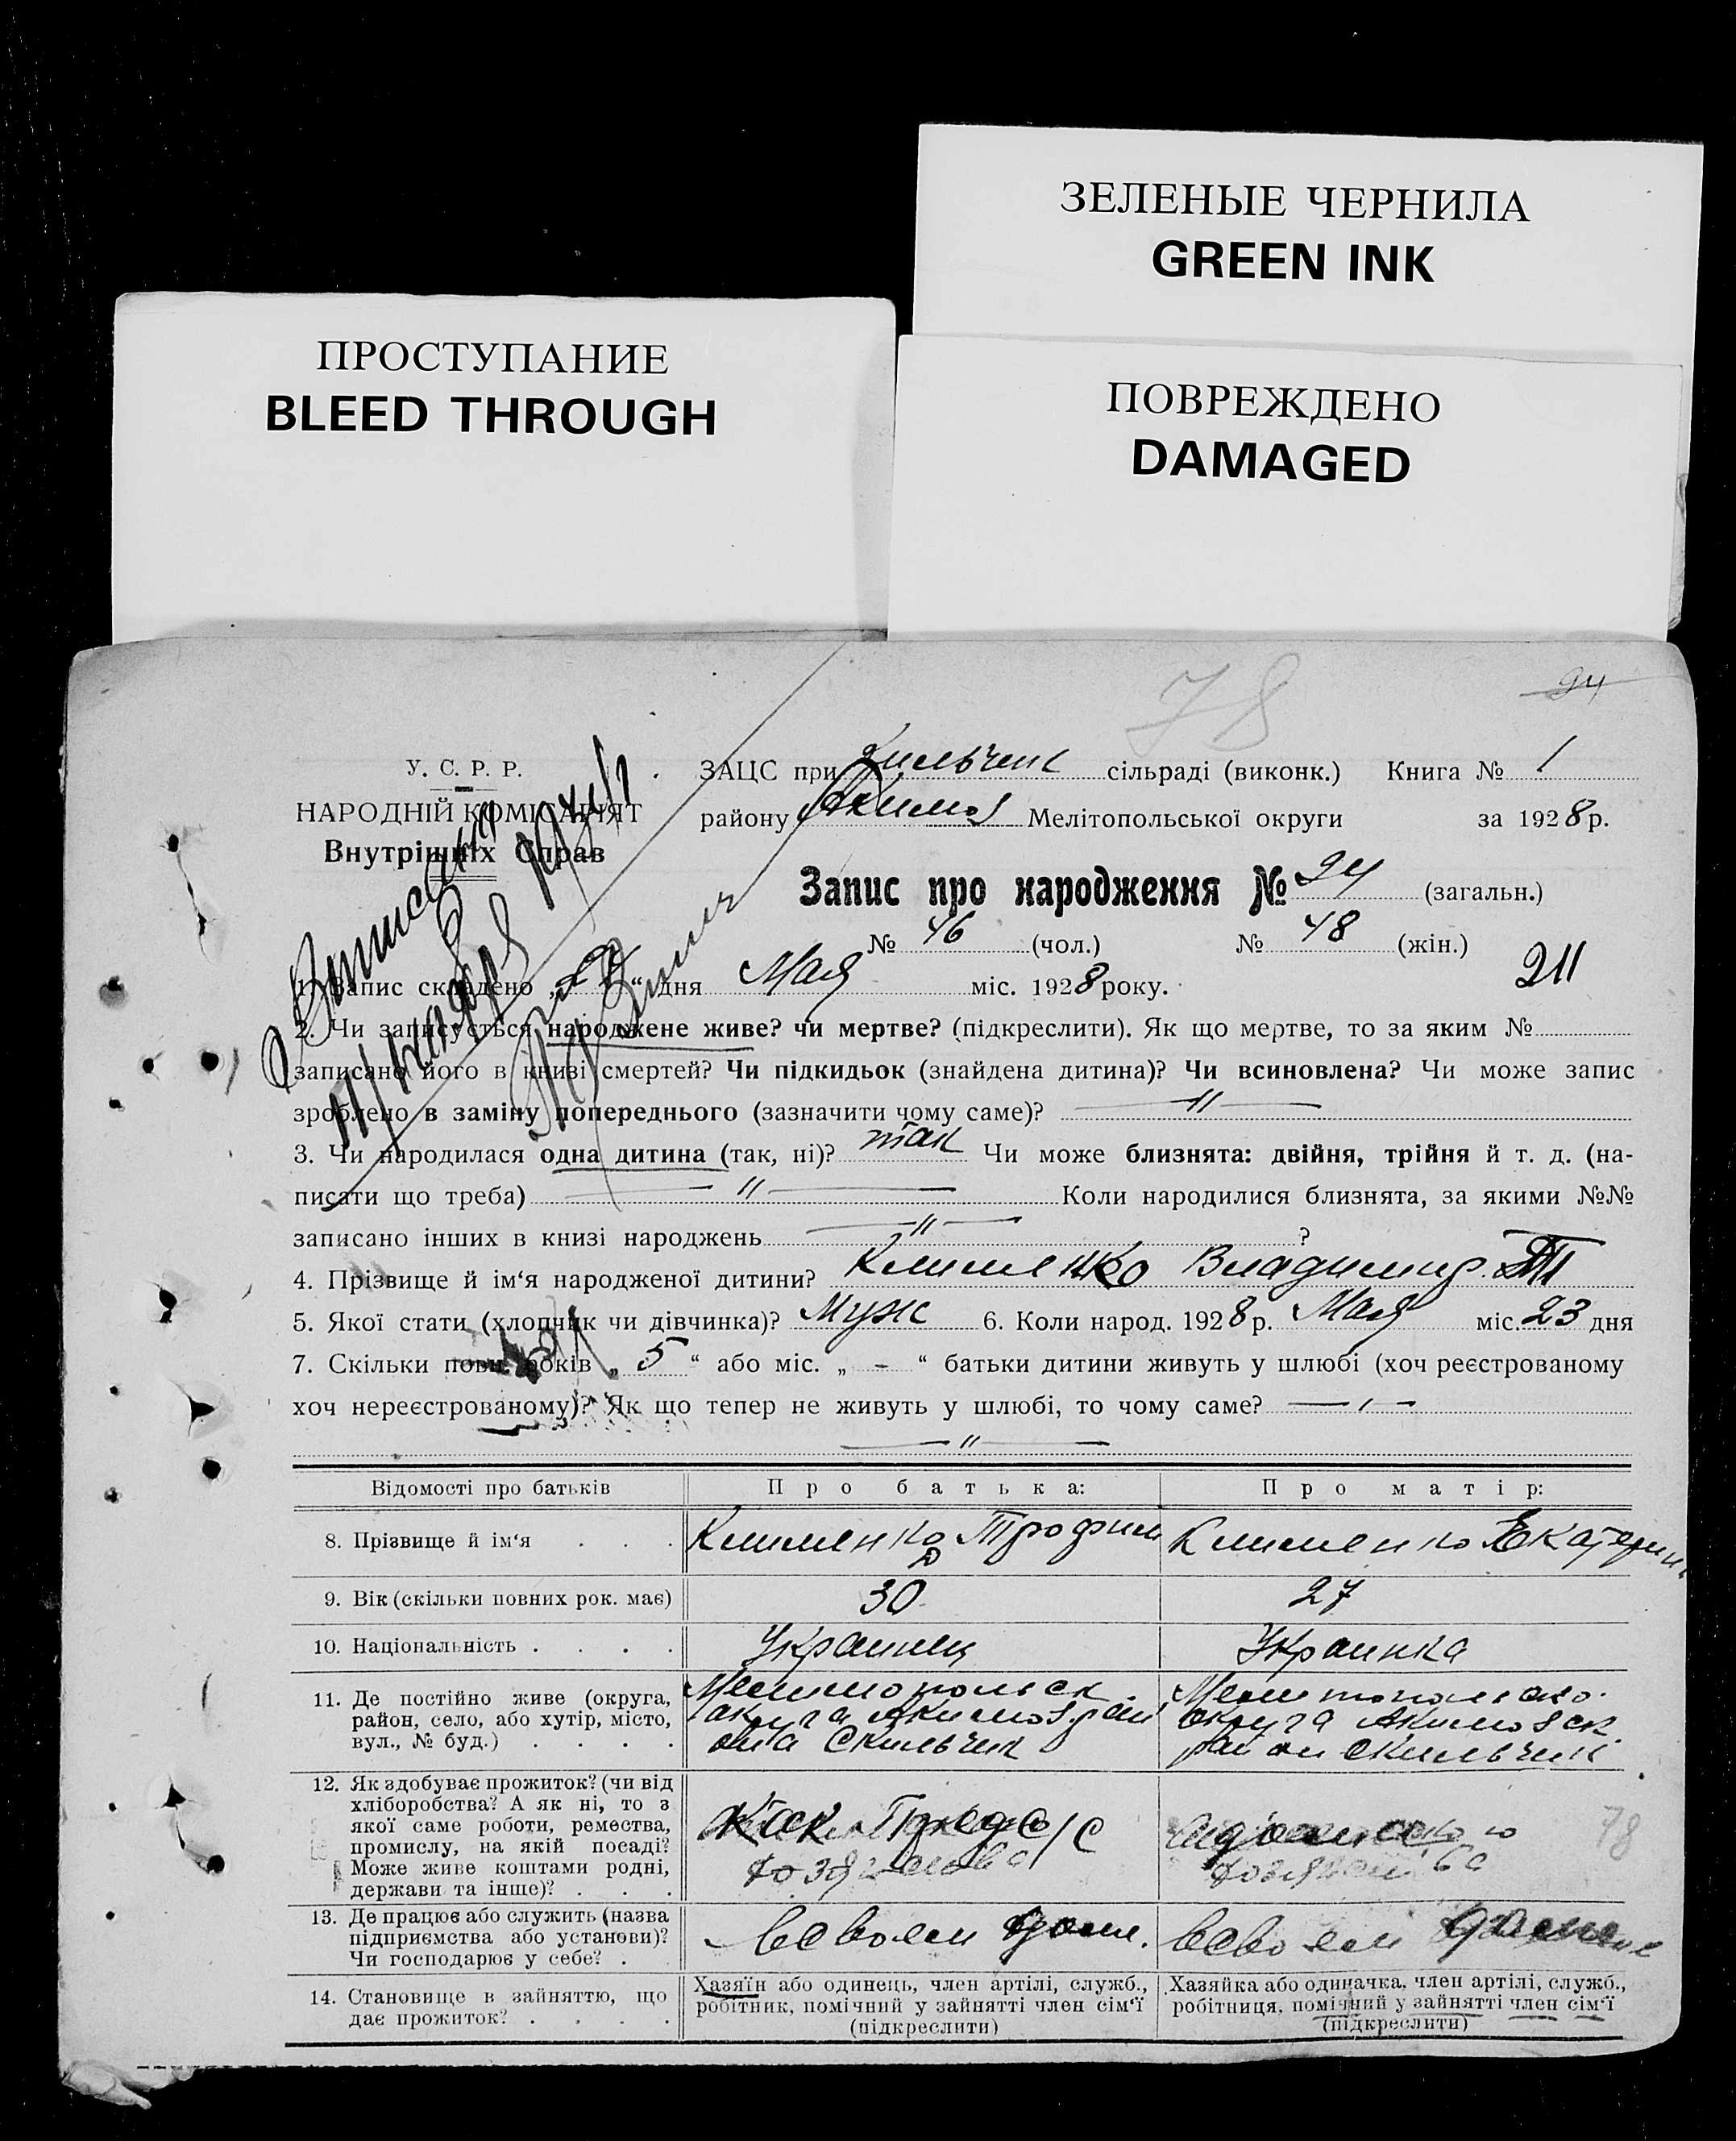 ЗЕЛЕНЫЕ ЧЕРНИЛА
GREEN INK
ПРОСТУПАНИЕ
BLEED THROUGH
ПОВРЕЖДЕНО
DAMAGED
78
94
У. С. Р. Р.
НАРОДНІЙ КОМІСАРІЯТ
Внутрішніх Справ
ЗАЦС при сільраді (виконк.) Книга № 1
району Акимов Мелітопольської округи за 1928 р.
Запис про народження № 94 (загальн.)
№ 46 (чол.) № 48 (жін.)
211
1. Запис складено „ “ дня Мая міс. 1928 року.
2. Чи записується народжене живе? чи мертве? (підкреслити). Як що мертве, то за яким №
записано його в книзі смертей? Чи підкидьок (знайдена дитина)? Чи всиновлена? Чи може запис
зроблено в заміну попереднього (зазначити чому саме)? — „ —
3. Чи народилася одна дитина (так, ні)? так Чи може близнята: двійня, трійня й т. д. (на-
писати що треба) — „ — Коли народилися близнята, за якими №№
записано інших в книзі народжень — „ — ?
4. Прізвище й ім‘я народженої дитини? Клименко Владимир Т
5. Якої стати (хлопчик чи дівчинка)? Муж 6. Коли народ. 1928 р. Мая міс. 23 дня
7. Скільки повн. років „ 5 “ або міс. „ - “ батьки дитини живуть у шлюбі (хоч реєстрованому
хоч нереєстрованому)? Як що тепер не живуть у шлюбі, то чому саме? — „ —
— „ —
Відомості про батьків Про батька: Про матір:
8. Прізвище й ім‘я . . . Клименко Трофим Клименко Екатерин
9. Вік (скільки повних рок. має) 30 27
10. Національність . . . . Украинец Украинка
11. Де постійно живе (округа,
район, село, або хутір, місто,
вул., № буд.) . . . .
Мелитопольск
округа Акимов рай
она Скильчик
Мелитопольско
округа Акимовск
район Скильчик
12. Як здобуває прожиток? (чи від
хліборобства? А як ні, то з
якої саме роботи, ремества,
промислу, на якій посаді?
Може живе коштами родні,
держави та інше)? . . .
78
13. Де працює або служить (назва
підприємства або установи)?
Чи господарює у себе? .
всвоем доме.
всвоем доме
14. Становище в зайняттю, що
дає прожиток? . . . .
Хазяїн або одинець, член артілі, служб.,
робітник, помічний у зайнятті член сім‘ї
(підкреслити)
Хазяйка або одиначка, член артілі, служб.,
робітниця, помічний у зайнятті член сім‘ї
(підкреслити)